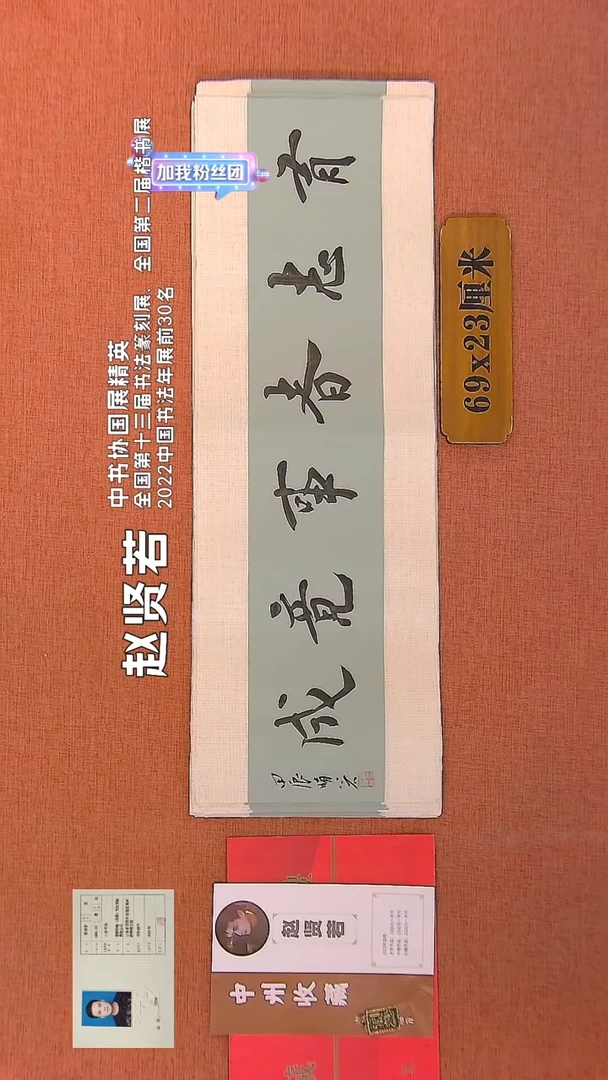 赵贤若
中书协国展精英
全国第十三届书法篆刻展、全国第二届楷书展
2022中国书法年展前30名
加我粉丝团
有志者事竟成
甲辰
69x23厘米
赵贤若
中州收藏